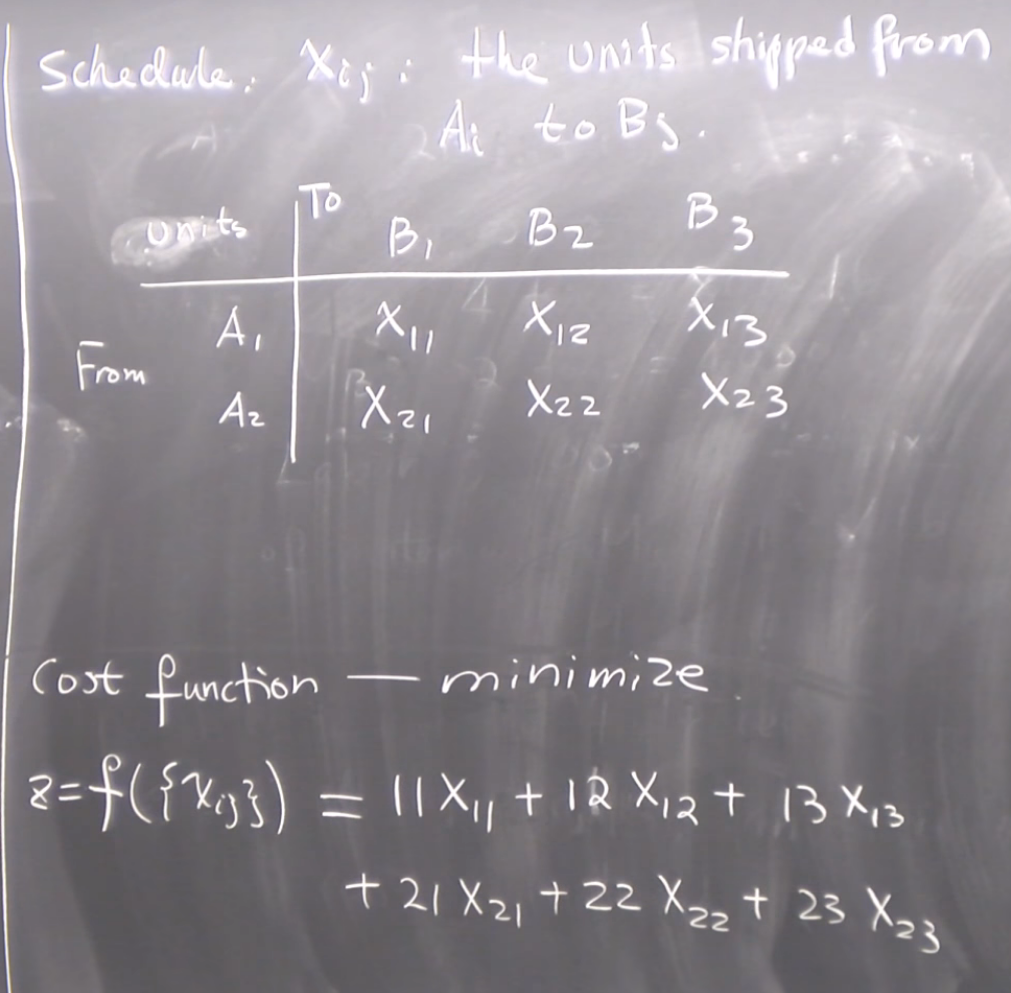 Schedule. Xij : the units shipped from
Ai to Bj.
units To B1 B2 B3
A1 X11 X12 X13
From
A2 X21 X22 X23
Cost function — minimize
z=f({xij}) = 11X11 + 12X12 + 13X13
+ 21X21 + 22X22 + 23X23